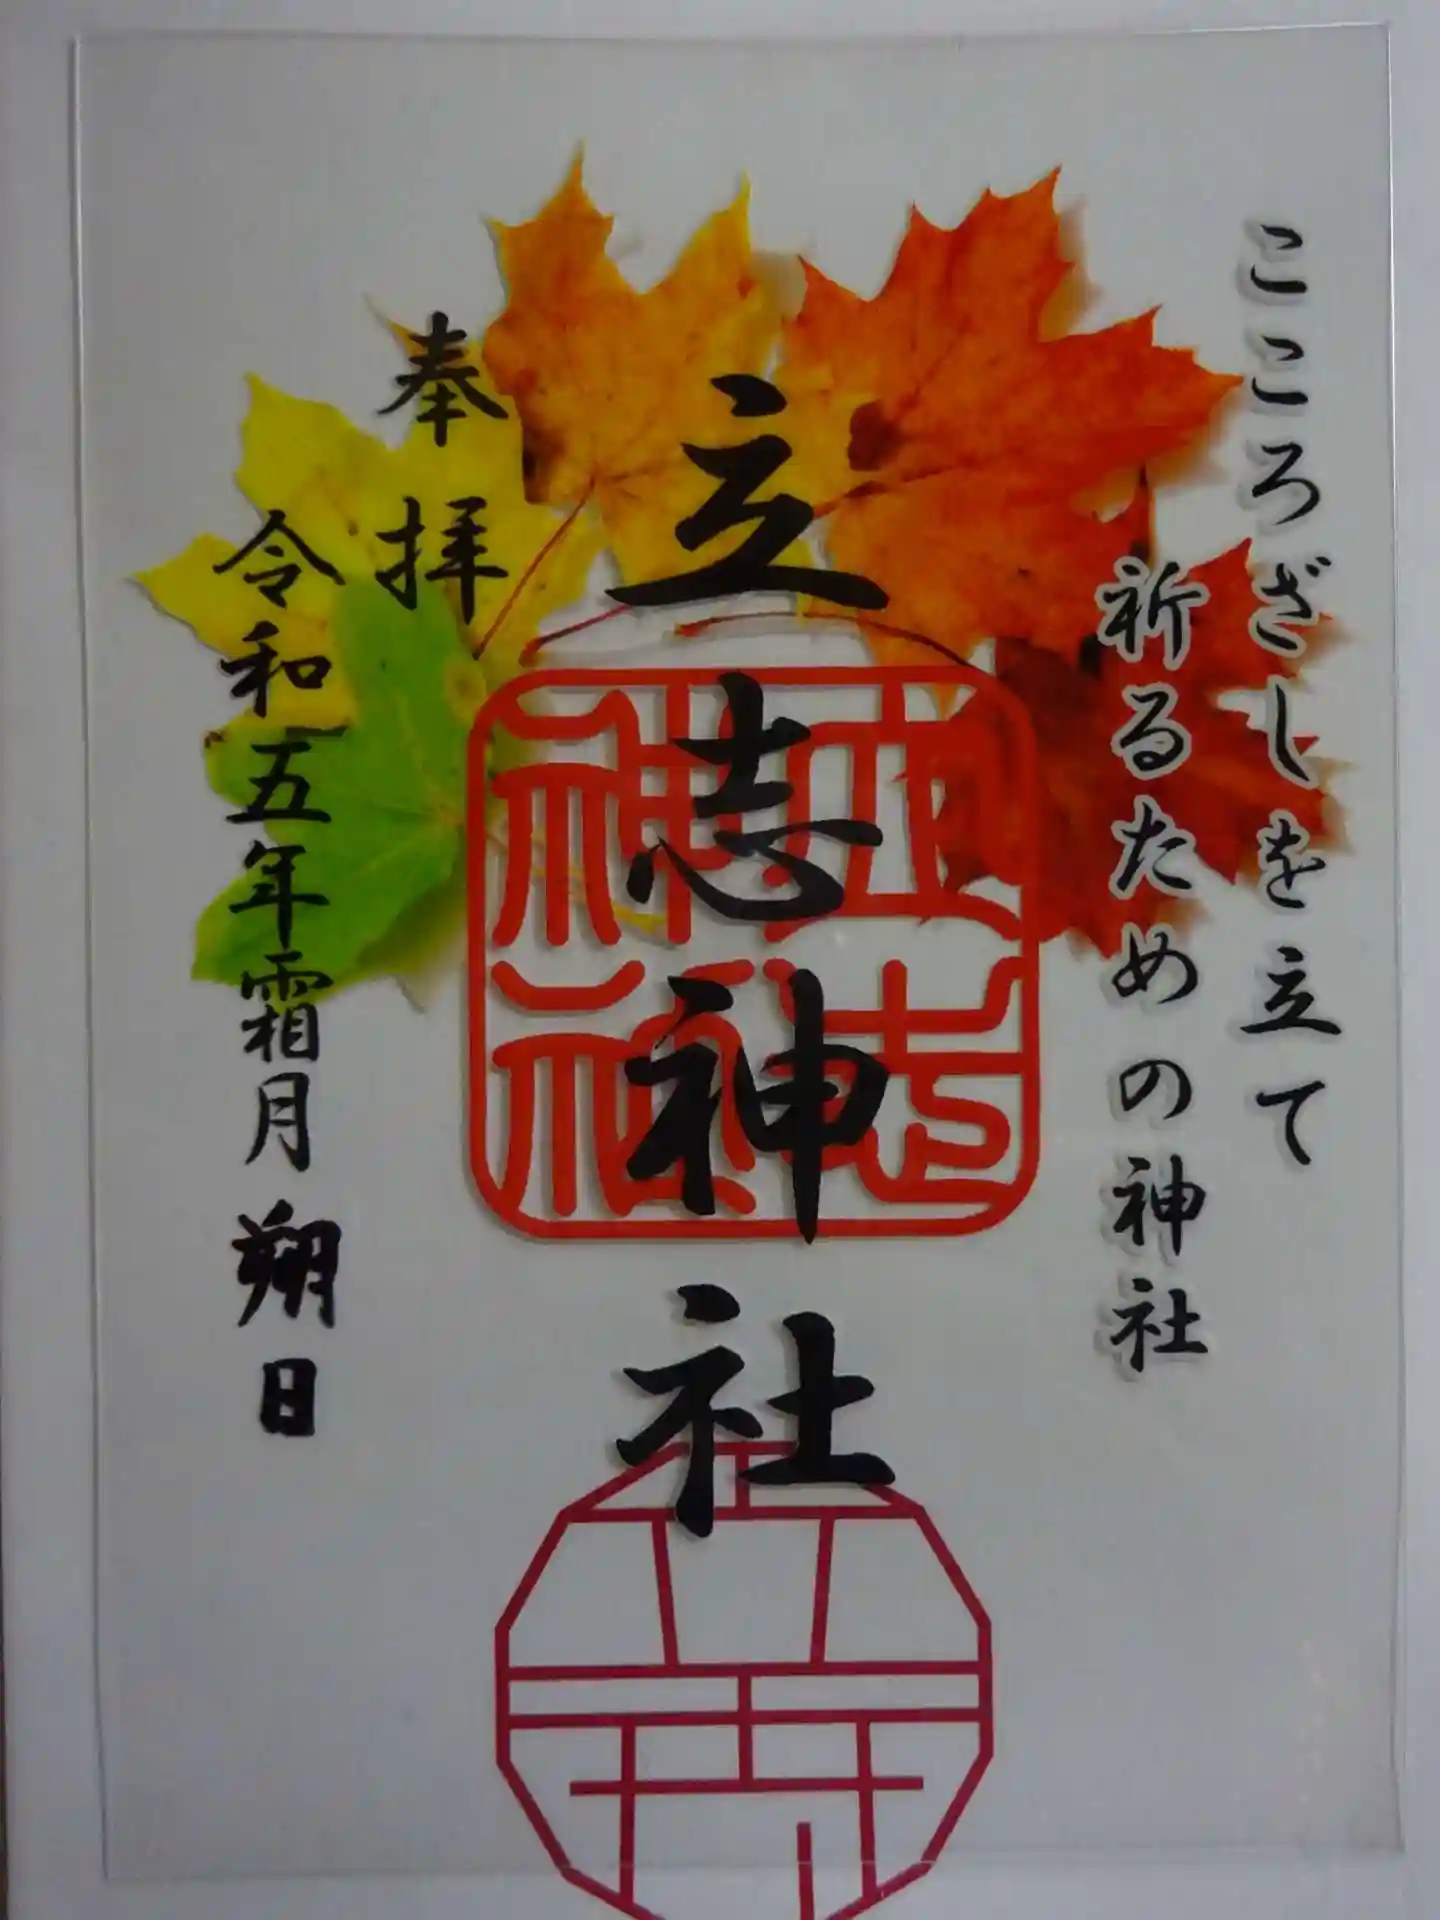 こころざしを立て
祈るための神社
立志神社
奉拝
令和五年霜月朔日